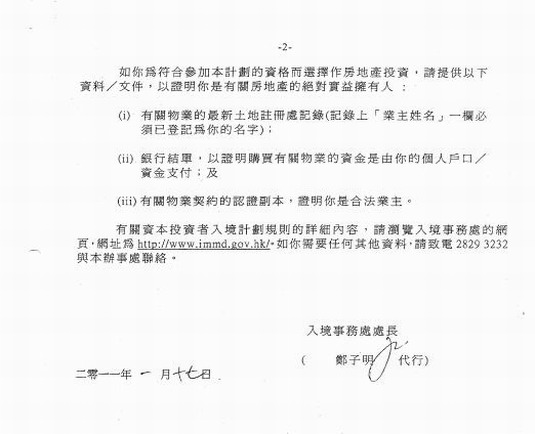 -2-
如你為符合參加本計劃的資格而選擇作房地產投資，請提供以下
資料／文件，以證明你是有關房地產的絕對實益擁有人：
(i) 有關物業的最新土地註冊處記錄(記錄上「業主姓名」一欄必
須已登記為你的名字)；
(ii) 銀行結單，以證明購買有關物業的資金是由你的個人戶口／
資金支付；及
(iii) 有關物業契約的認證副本，證明你是合法業主。
有關資本投資者入境計劃規則的詳細內容，請瀏覽入境事務處的網
頁，網址為 http://www.immd.gov.hk/。如你需要任何其他資料，請致電 2829 3232
與本辦事處聯絡。
入境事務處處長
( 鄭子明 代行)
二零一一年 一 月十七日